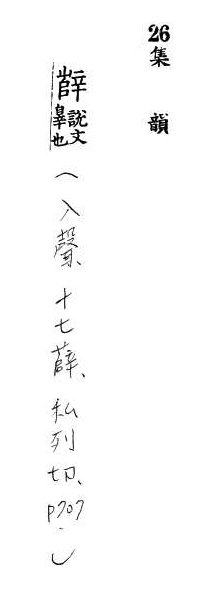 26 集韻
辥說文辠也(入聲、十七薛、私列切、p707.)